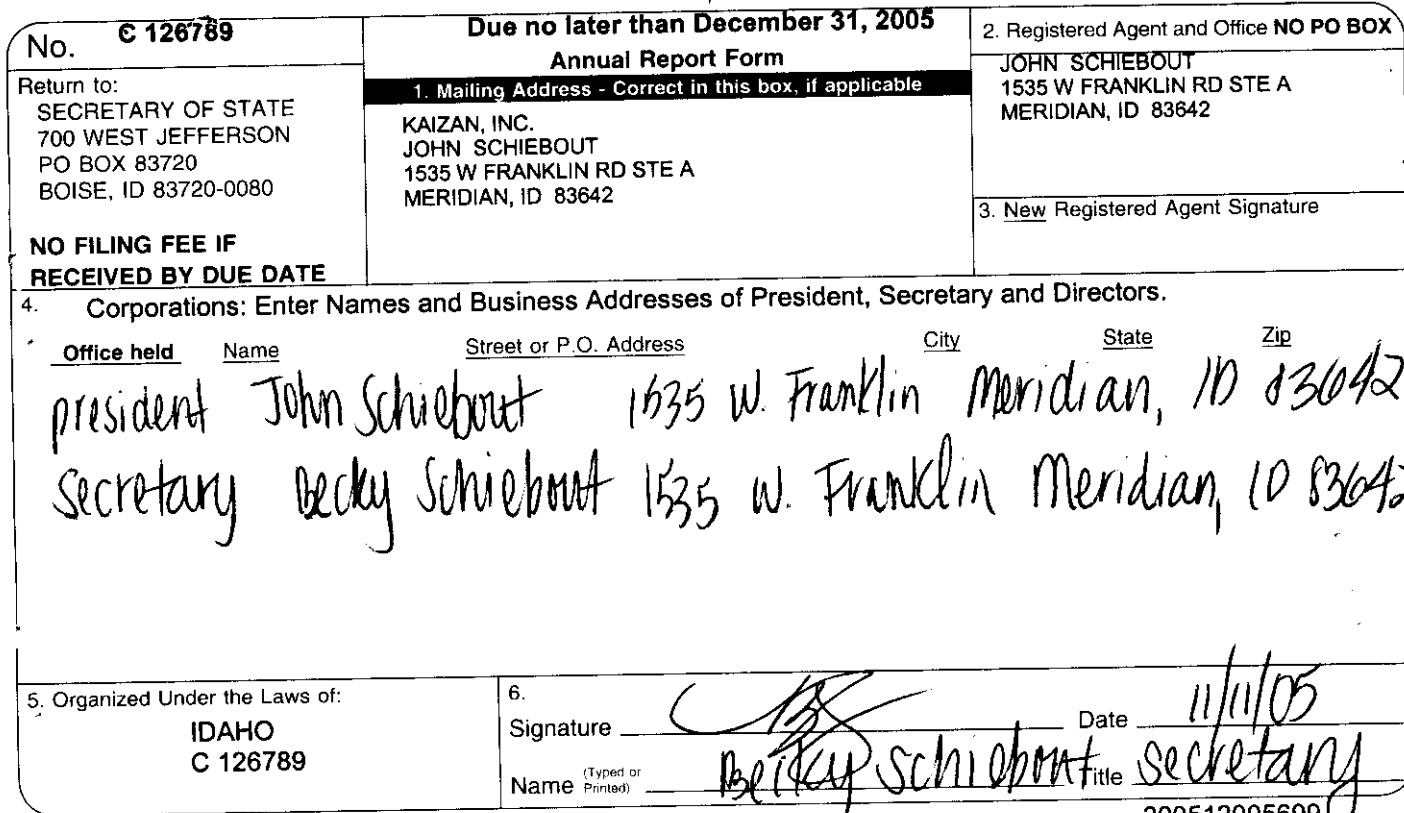 No. C 126789
Return to:
SECRETARY OF STATE
700 WEST JEFFERSON
PO BOX 83720
BOISE, ID 83720-0080
NO FILING FEE IF
RECEIVED BY DUE DATE
Due no later than December 31, 2005
Annual Report Form
1. Mailing Address - Correct in this box, if applicable
KAIZAN, INC.
JOHN SCHIEBOUT
1535 W FRANKLIN RD STE A
MERIDIAN, ID 83642
2. Registered Agent and Office NO PO BOX
JOHN SCHIEBOUT
1535 W FRANKLIN RD STE A
MERIDIAN, ID 83642
3. New Registered Agent Signature
4. Corporations: Enter Names and Business Addresses of President, Secretary and Directors.
Office held Name Street or P.O. Address City State Zip
president John Schiebout 1535 W. Franklin Meridian, ID 83642
Secretary Becky Schiebout 1535 W. Franklin Meridian, ID 83642
5. Organized Under the Laws of:
IDAHO
C 126789
6.
Signature Date 11/11/05
Name (Typed or Printed) Becky Schiebout Title Secretary